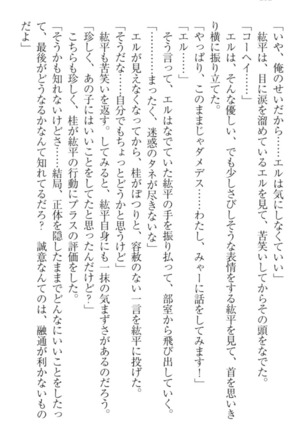 「いや、俺のせいだから……エルは気にしなくていい」
「コーヘイ……」
紘平は、目に涙を溜めているエルを見て、苦笑いしてからその頭をなでた。
エルは、そんな優しい、でも少しさびしそうな表情をする紘平を見て、首を思いき
り横に振り立てた。
「やっぱり、このままじゃダメデス……わたし、みゃーに話をしてみます！」
「エル……」
そう言って、エルはなでていた紘平の手を振り払って、部室から飛び出していく。
「………まったく、迷惑のタネが尽きないな」
エルが見えなくなってから、桂がぽつりと、容赦のない一言を紘平に投げた。
「そうだな……自分でもちょっとどうかと思うけど」
紘平も苦笑いを返す。してみると、紘平自身にも一抹の気まずさがあるのだろう。
「珍しく、あの子にはいいことをしてたと思ったんだけど？」
こちらも珍しく、桂が紘平の行動にプラスの評価をした。
「そうかも知れないけどさ……結局、正体を隠したままでどんなにいいことをしたっ
て、最後がどうなるかなんて知れてるだろ？　誠意なんてのは、融通が利かないもの
だよ」